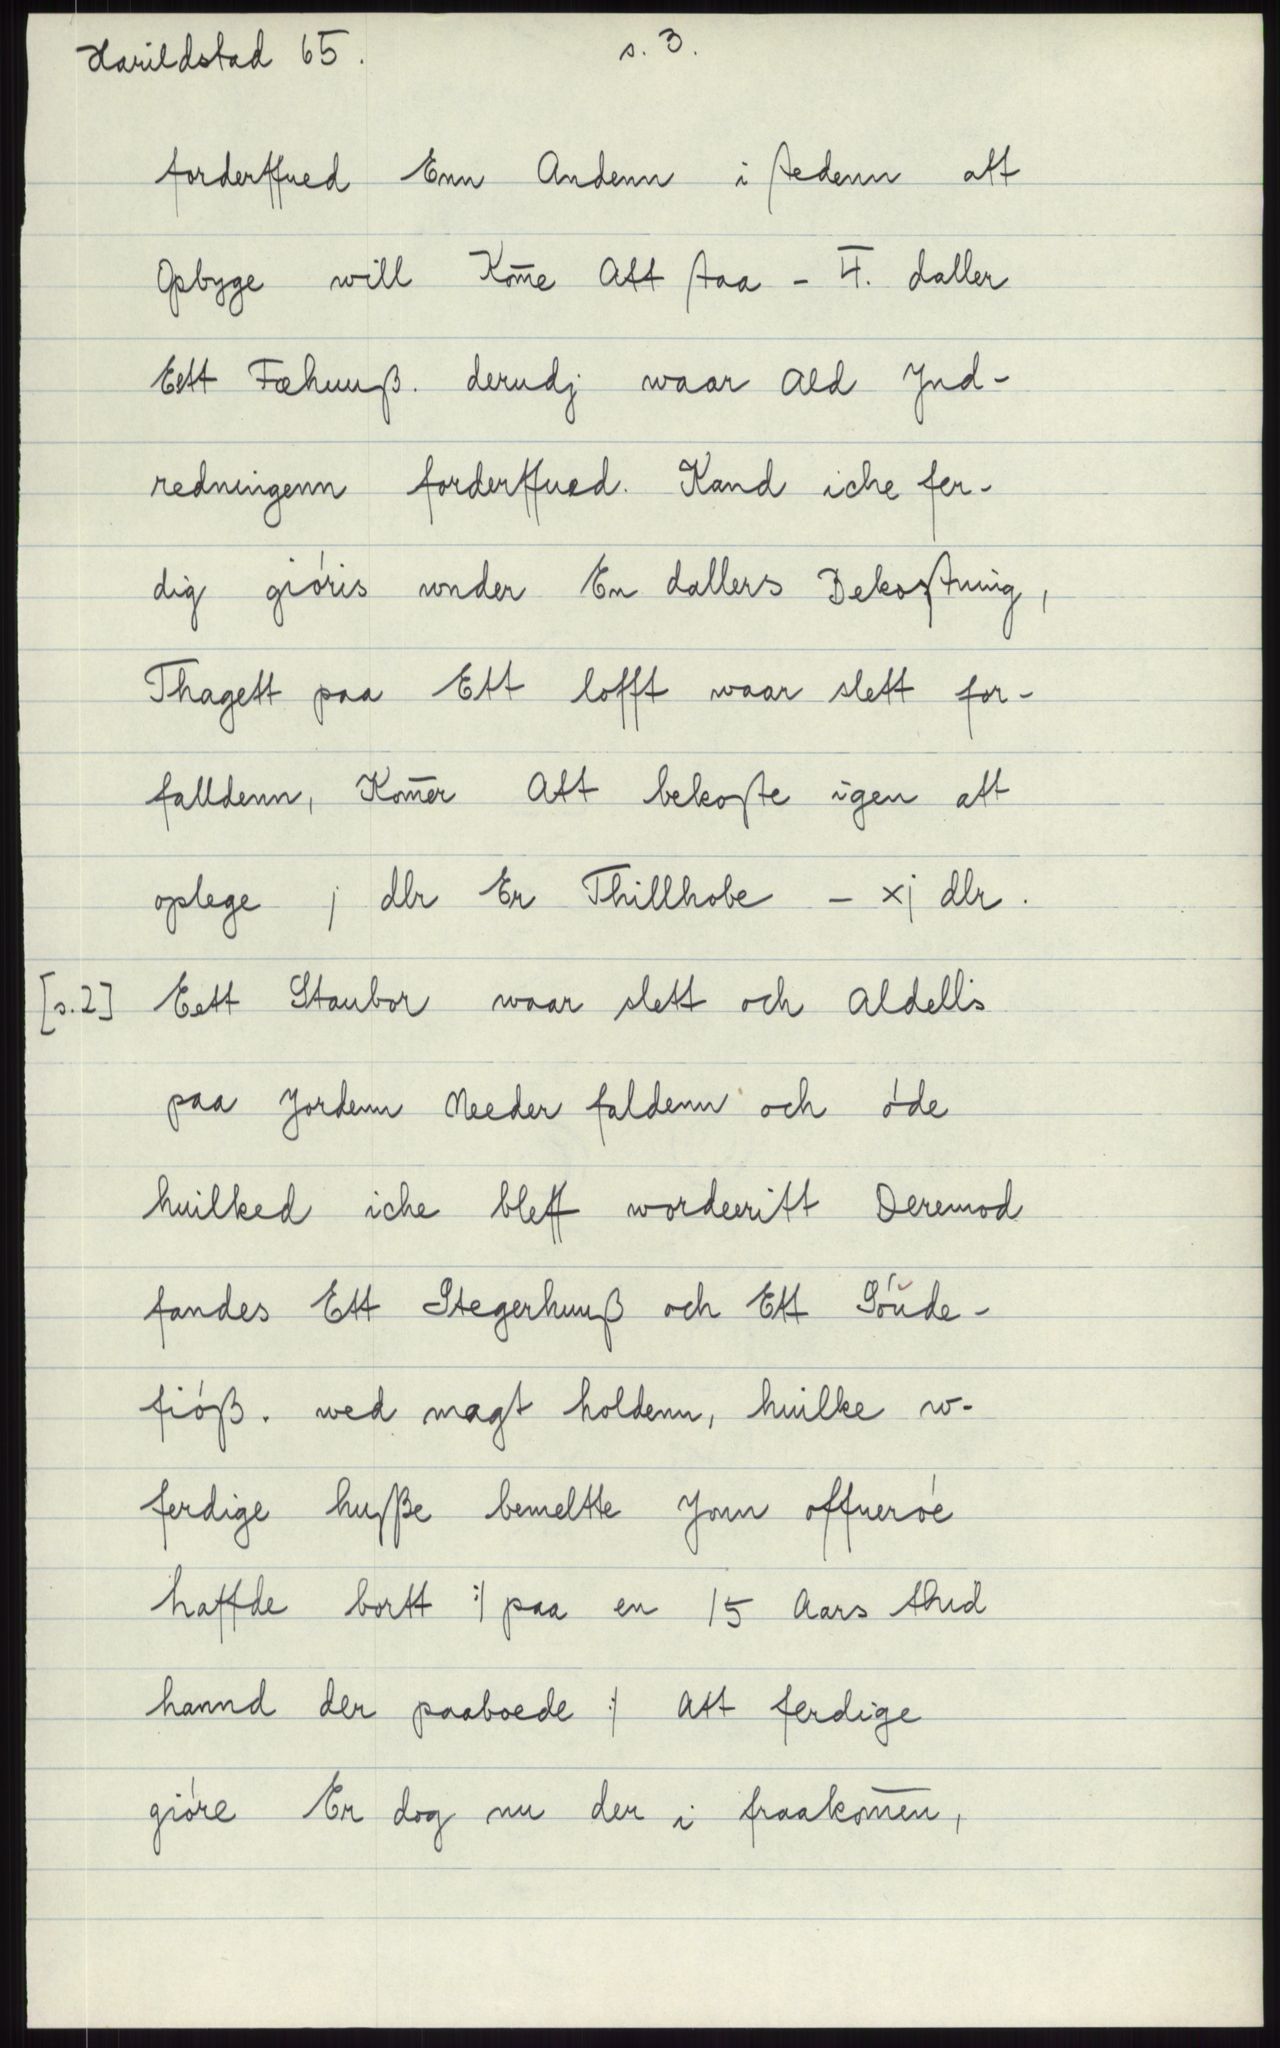 Harildstad 65. s. 3.
forderffued Enn Andenn i stedenn att
Opbyge will Kom̅e Att staa - 4. daller
Eett Fæhuuß. derudj waar Ald Jnd-
redningenn forderffued. Kand iche fer-
dig gióris wnder En dallers Bekostning,
Thagett paa Ett lofft waar slett for-
falldenn, Kom̅er Att bekoste igen att
oplege j dlr Er Thillhobe - xj dlr.
[s.2] Eett Staubor waar slett och Aldellis
paa Jordenn Needer faldenn och óde
huilked iche bleff worderitt Deremod
fandes Ett Stegerhuuß och Ett Sóŭde-
fióß. wed magt holdenn, huilke w-
ferdige husße bemeltte Jonn offueróe
haffde bortt :/ paa en 15 Aars thid
hannd der paaboede :/ Att ferdige
gióre Er dog nu der i fraakom̅en,